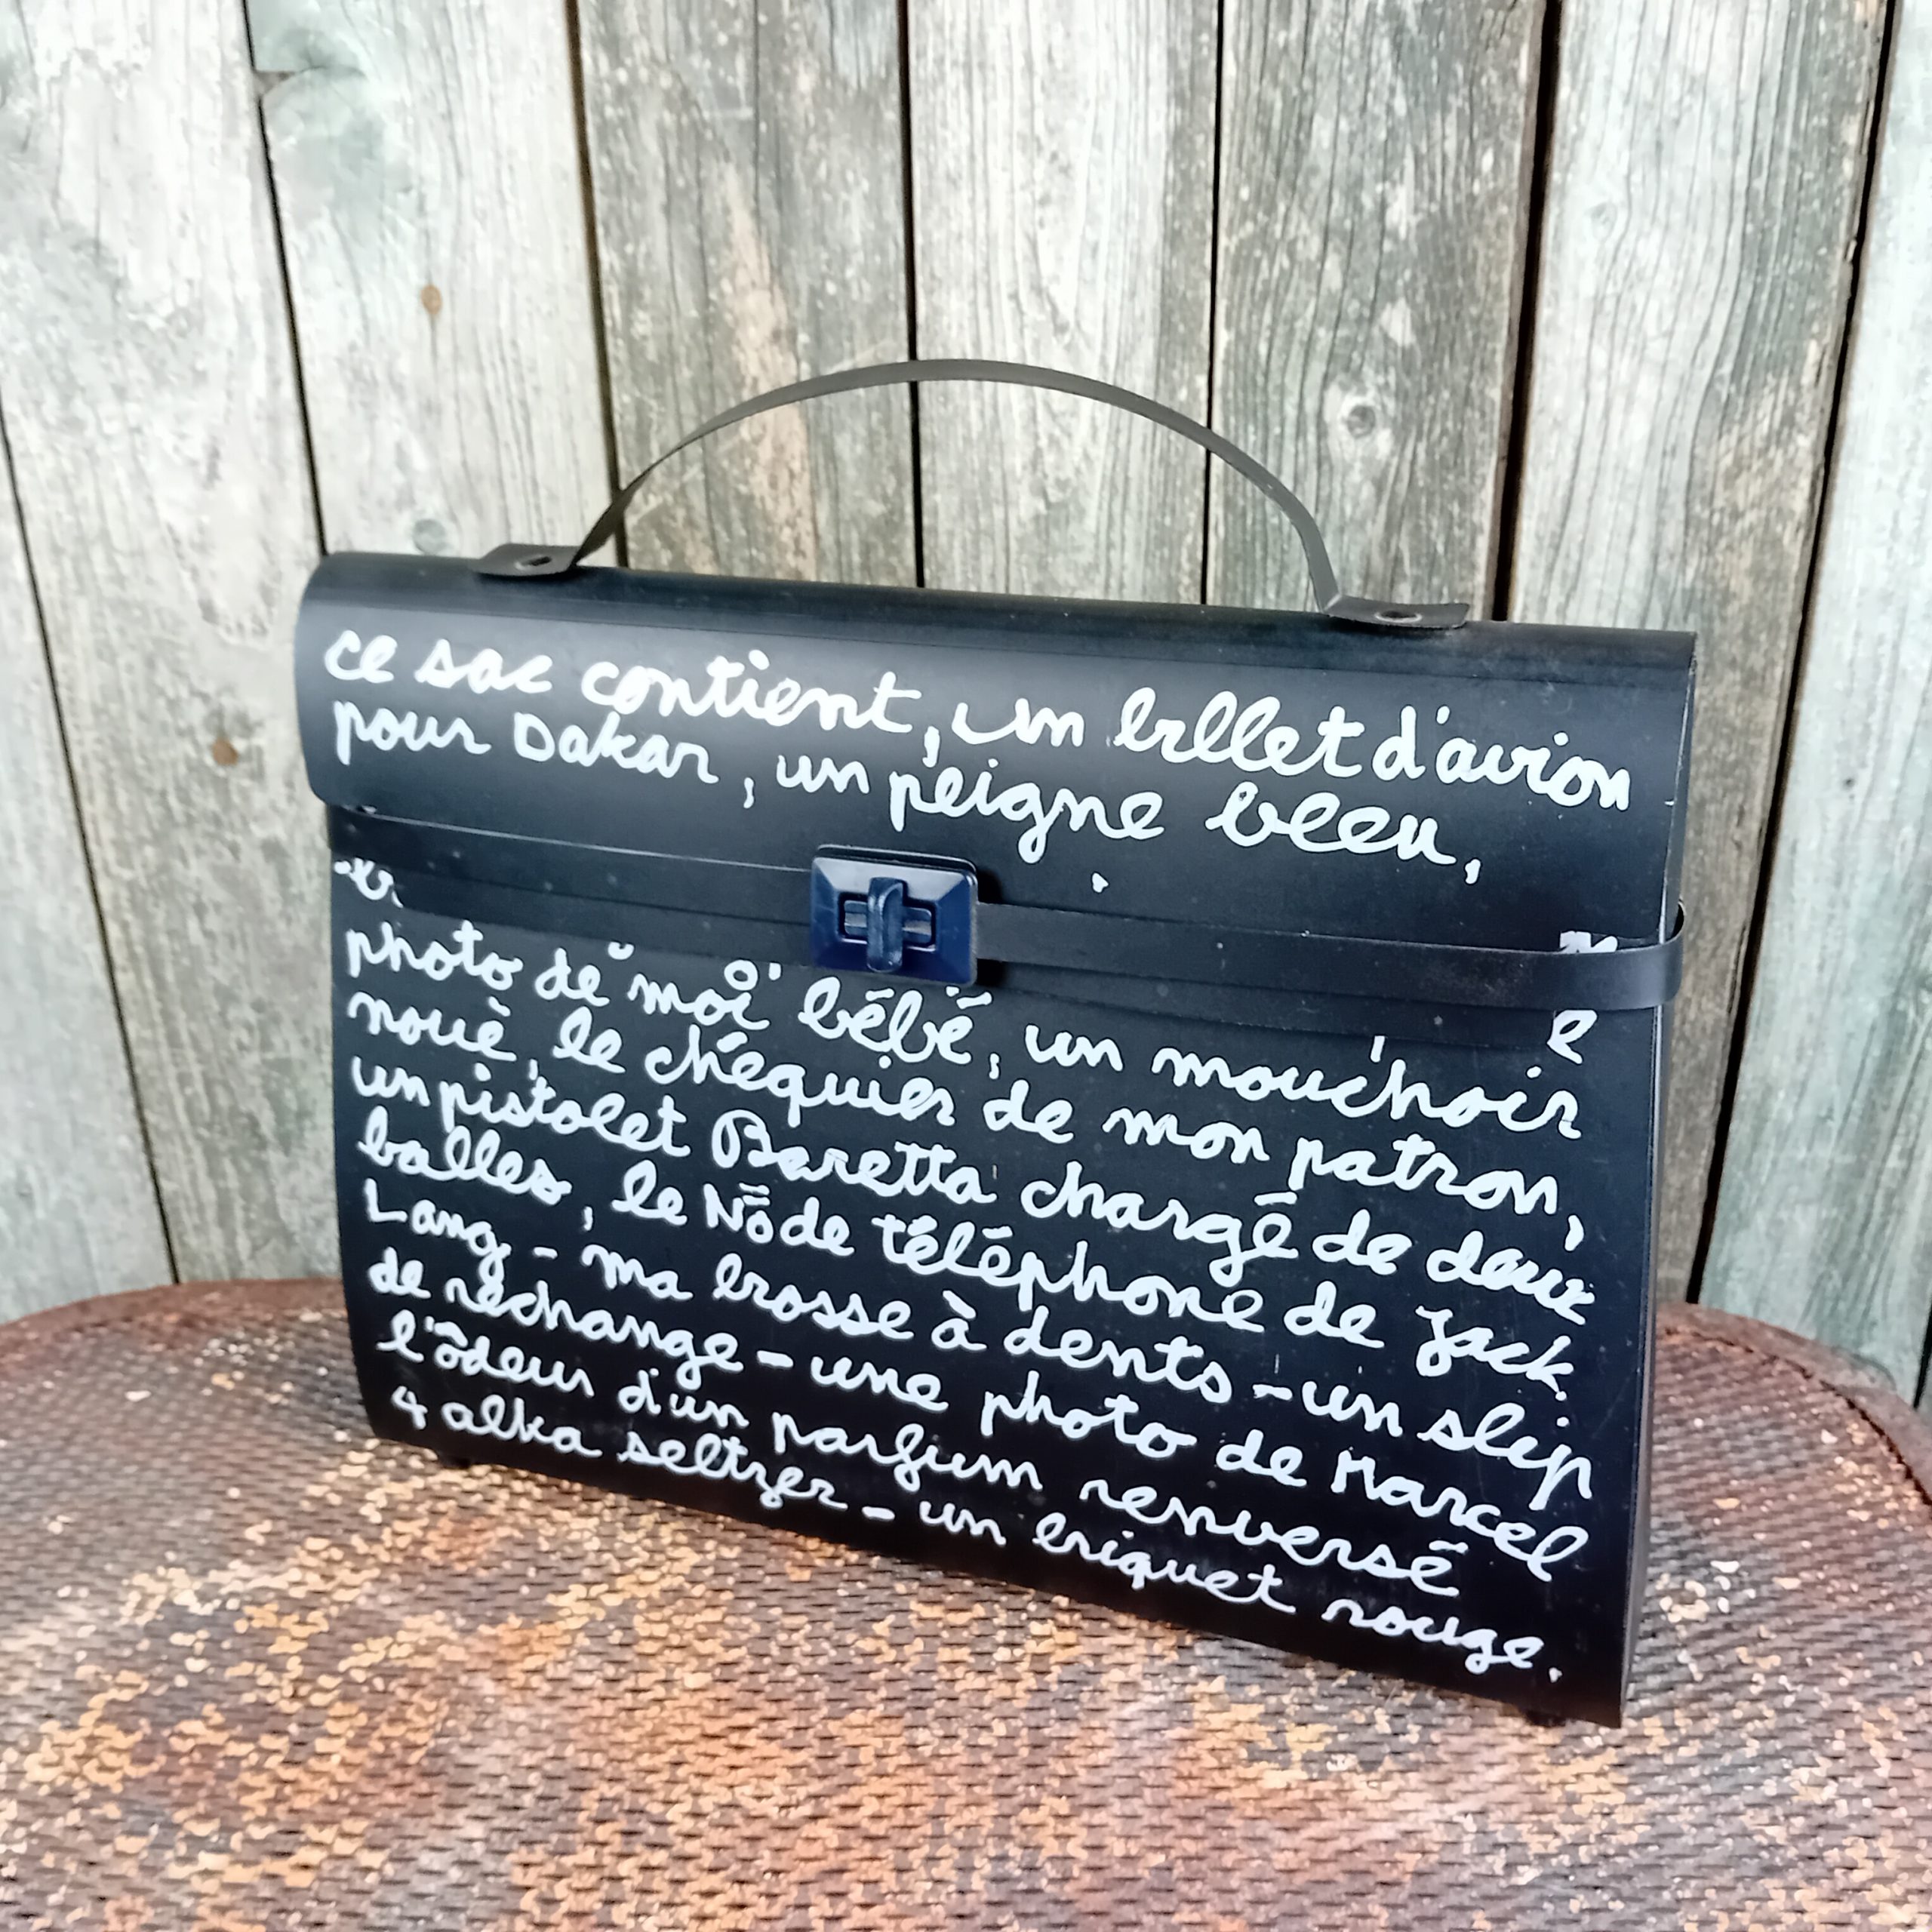 ce sac contient, un billet d'avion
pour Dakar, un peigne bleu,
photo de moi bébé, un mouchoir
noué, le chéquier de mon patron,
un pistolet Baretta chargé de deux
balles, le No de téléphone de Jack
Lang - ma brosse à dents - un slip
de rechange - une photo de Marcel
l'odeur d'un parfum renversé
4 alka seltzer - un briquet rouge.